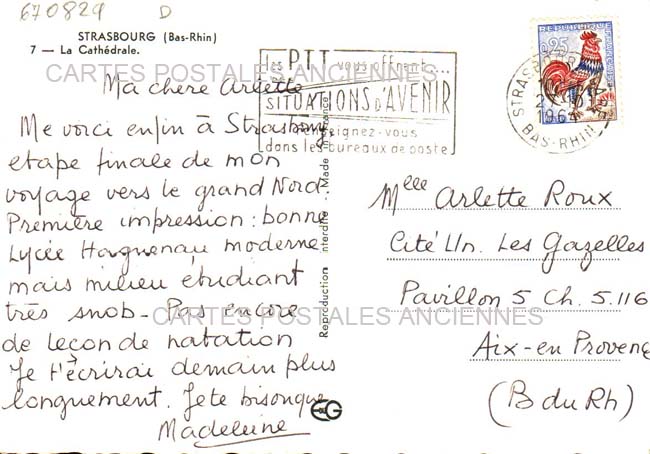 670829 D
STRASBOURG (Bas-Rhin)
7 — La Cathédrale.
CARTES POSTALES ANCIENNES
Ma chère Arlette
Me voici enfin à Strasbourg,
etape finale de mon
voyage vers le grand Nord
Première impression : bonne
Lycée Haguenau moderne
mais milieu étudiant
très snob - Pas encore
de leçon de natation
Je t'écrirai demain plus
longuement. Je te bisonque
Madeleine
CARTES POSTALES ANCIENNES
Reproduction interdite - Made in France
EG
Les PTT vous offrent...
des
SITUATIONS d'AVENIR
Renseignez-vous
dans les bureaux de poste
STRASBOURG
1964
BAS-RHIN
0,25
Melle Arlette Roux
Cité Un. Les Gazelles
Pavillon 5 Ch. 5.116
Aix-en Provence
(B du Rh)